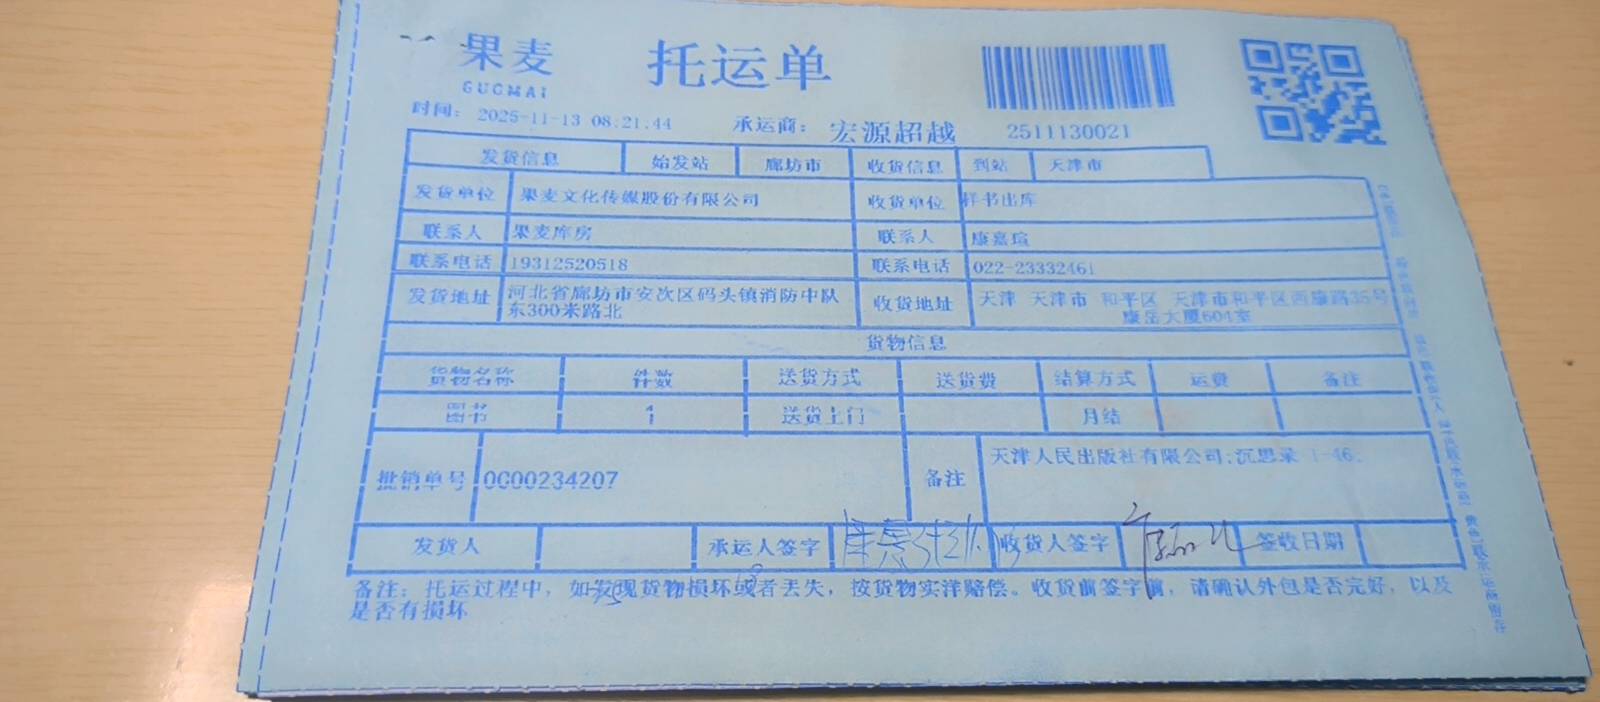 果麦 托运单
GUOMAI
时间: 2025-11-13 08:21:44 承运商: 宏源超越 2511130021
发货信息 始发站 廊坊市 收货信息 到站 天津市
发货单位 果麦文化传媒股份有限公司 收货单位 样书出库
联系人 果麦库房 联系人 康嘉瑄
联系电话 19312520518 联系电话 022-23332461
发货地址 河北省廊坊市安次区码头镇消防中队东300米路北 收货地址 天津 天津市 和平区 天津市和平区西康路35号康岳大厦604室
货物信息
货物名称 件数 送货方式 送货费 结算方式 运费 备注
图书 1 送货上门 月结
批销单号 0000234207 备注 天津人民出版社有限公司;沉思录 1-46;
发货人 承运人签字 收货人签字 签收日期
备注: 托运过程中, 如发现货物损坏或者丢失, 按货物实洋赔偿。收货前签字前, 请确认外包是否完好, 以及
是否有损坏